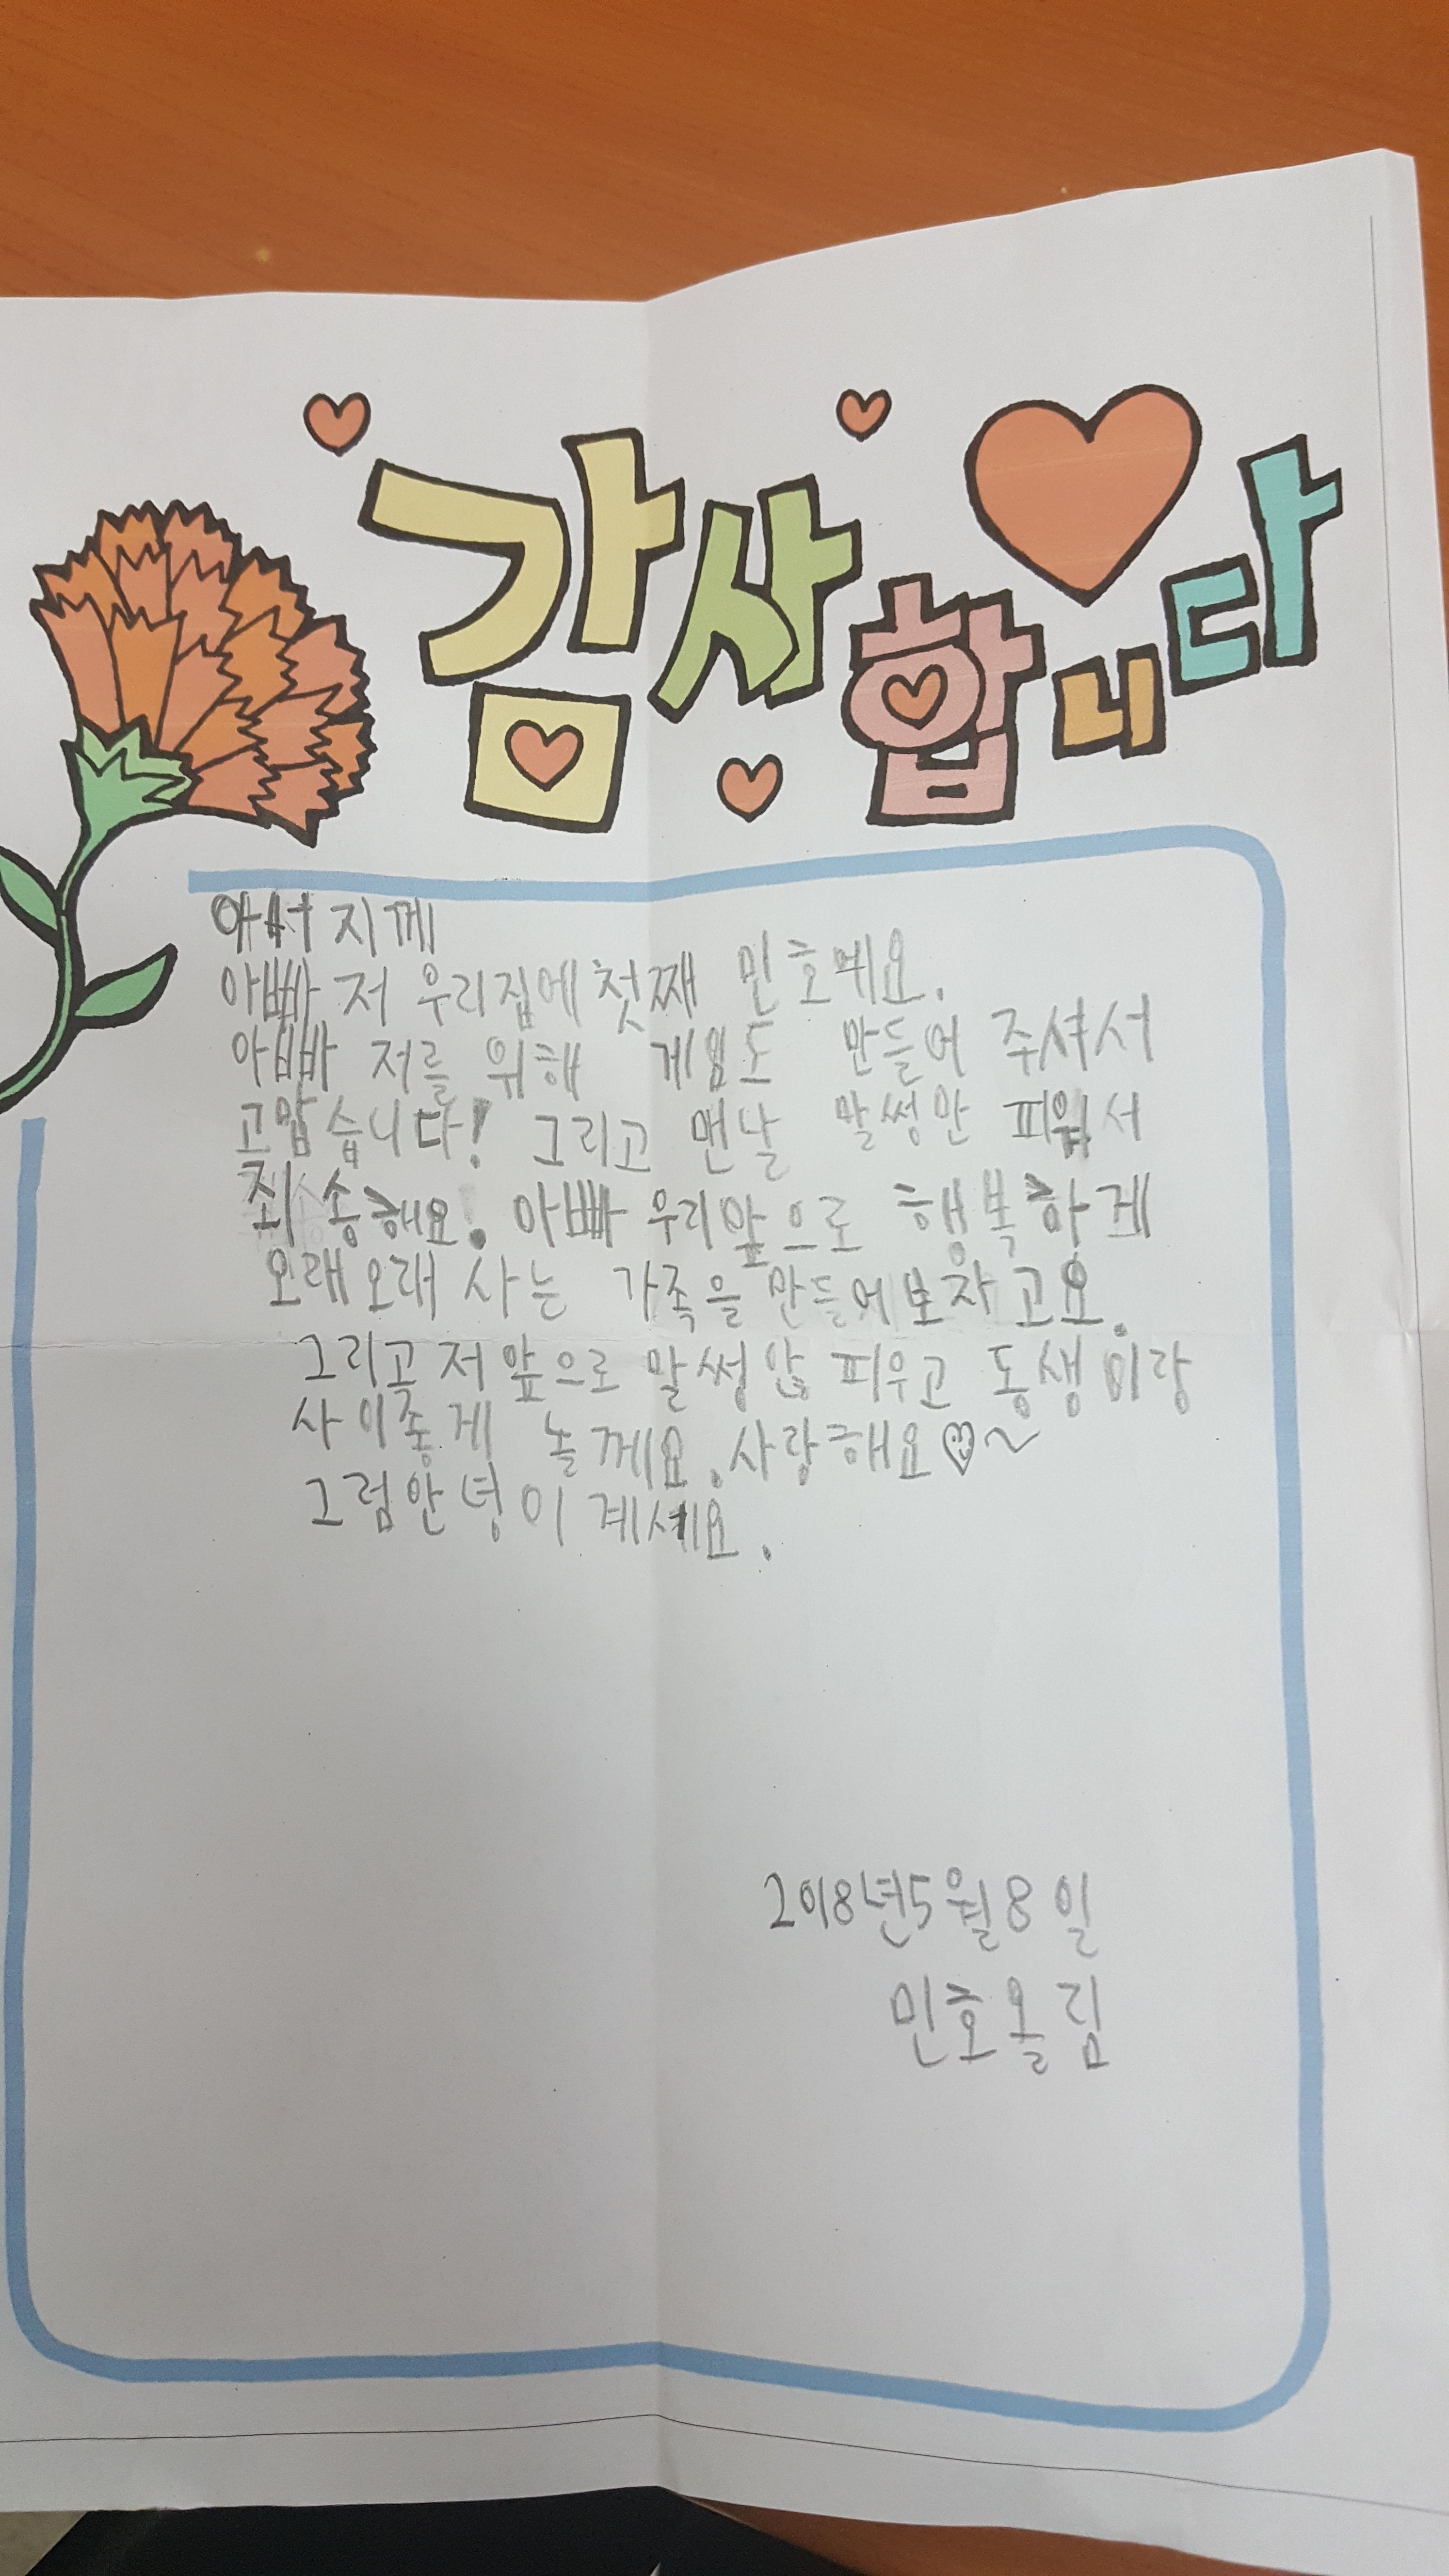 감사합니다
아버지께
아빠 저 우리집에 첫째 민호예요.
아빠 저를 위해 게임도 만들어 주셔서
고맙습니다! 그리고 맨날 말썽만 피워서
죄송해요. 아빠 우리앞으로 행복하게
오래오래 사는 가족을 만들어보자고요.
그리고 저 앞으로 말썽 않 피우고 동생이랑
사이좋게 놀께요. 사랑해요♡~
그럼안녕이 계세요.
2018년5월8일
민호올림